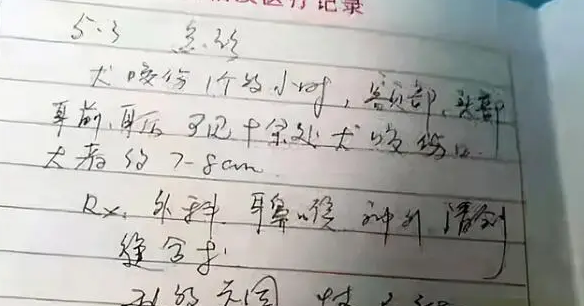 医疗记录
5.3 急诊
犬咬伤1个多小时，面部、头部
耳前、耳后可见十余处犬咬伤口.
大者约7-8cm.
Rx. 外科 耳鼻喉 神外 清创
缝合术